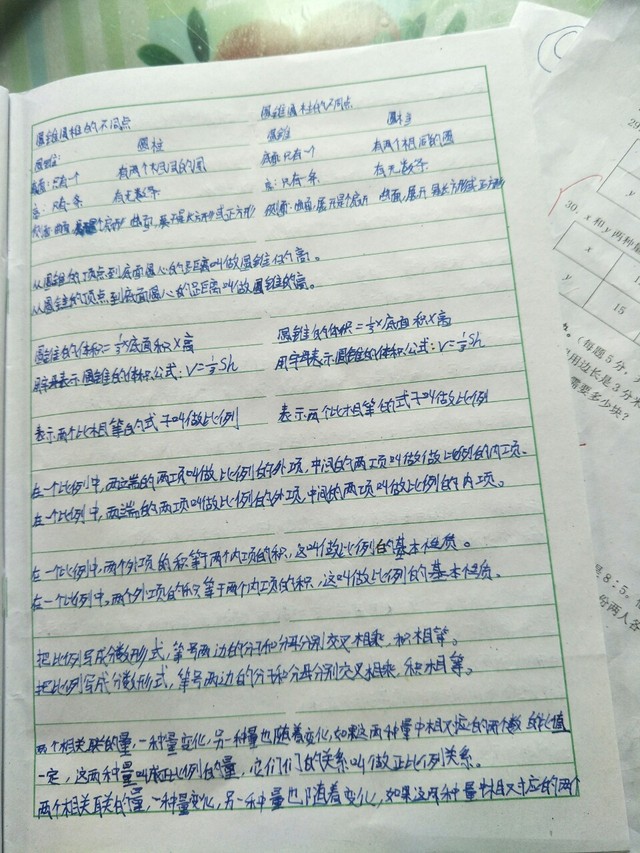 圆锥圆柱的不同点 圆锥圆柱的不同点
圆锥: 圆柱 圆锥 圆柱
底面:只有一个 有两个相同的圆 底面:只有一个 有两个相同的圆
高:只有一条 有无数条 高:只有一条 有无数条
侧面:曲面 展开是个扇形 曲面,展开是长方形或正方形 侧面:曲面,展开是个扇形 曲面,展开是长方形或正方形
从圆锥的顶点到底面圆心的距离叫做圆锥的高。
从圆锥的顶点到底面圆心的距离叫做圆锥的高。
圆锥的体积=⅓×底面积×高 圆锥的体积=⅓×底面积×高
用字母表示圆锥的体积公式:V=⅓Sh 用字母表示圆锥的体积公式:V=⅓Sh
表示两个比相等的式子叫做比例 表示两个比相等的式子叫做比例
在一个比例中,两端的两项叫做比例的外项,中间的两项叫做比例的内项。
在一个比例中,两端的两项叫做比例的外项,中间的两项叫做比例的内项。
在一个比例中,两个外项的积等于两个内项的积,这叫做比例的基本性质。
在一个比例中,两个外项的积等于两个内项的积,这叫做比例的基本性质。
把比例写成分数形式,等号两边的分子和分母分别交叉相乘,积相等。
把比例写成分数形式,等号两边的分子和分母分别交叉相乘,积相等。
两个相关联的量,一种量变化,另一种量也随着变化,如果这两种量中相对应的两个数的比值
一定,这两种量叫成正比例的量,它们们的关系叫做正比例关系。
两个相关联的量,一种量变化,另一种量也随着变化,如果这两种量中相对应的两个
29
30. x 和 y 两种
x
y 15
(每题5分,
用边长是3分米
需要多少块?
是 8:5。
份两人各